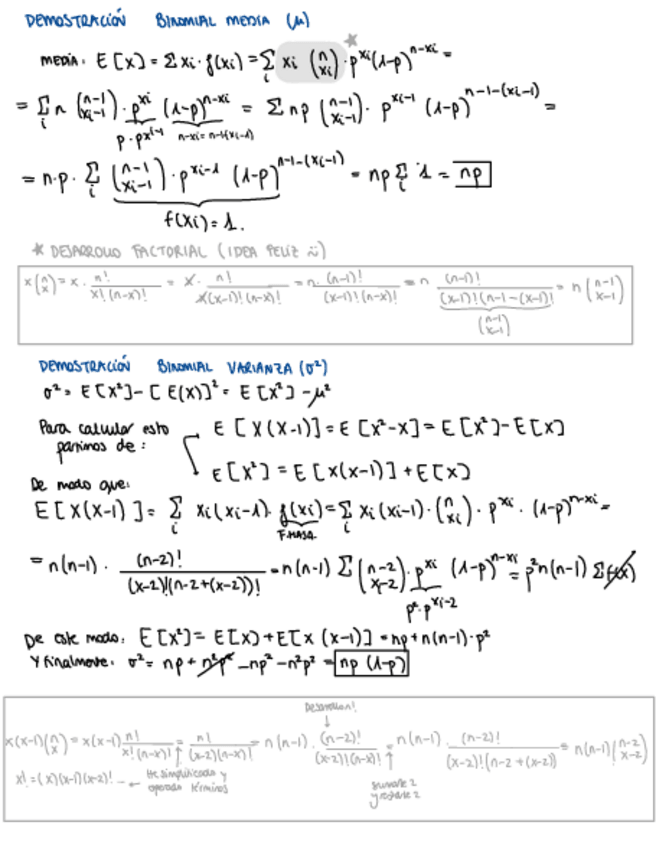 DEMOSTRACIÓN BINOMIAL MEDIA (μ)
MEDIA: E[X] = Σ xi · f(xi) = Σ_i xi (n xi) · p^xi (1-p)^(n-xi) =
= Σ_i n (n-1 xi-1) · p^xi (1-p)^(n-xi) = Σ np (n-1 xi-1) · p^(xi-1) (1-p)^(n-1-(xi-1)) =
p · p^(xi-1) n-xi = n-1-(xi-1)
= n·p · Σ_i (n-1 xi-1) · p^(xi-1) (1-p)^(n-1-(xi-1)) = np Σ_i 1 = np
f(xi) = 1.
* DESARROLLO FACTORIAL (IDEA FELIZ ü)
x (n x) = x · n! / x!(n-x)! = x · n! / x(x-1)!(n-x)! = n · (n-1)! / (x-1)!(n-x)! = n (n-1)! / (x-1)!(n-1-(x-1)! = n (n-1 x-1)
(n-1 x-1)
DEMOSTRACIÓN BINOMIAL VARIANZA (σ²)
σ² = E[X²] - [E(X)]² = E[X²] - μ²
Para calcular esto partimos de:
E[X(X-1)] = E[X²-X] = E[X²] - E[X]
E[X²] = E[X(X-1)] + E[X]
De modo que:
E[X(X-1)] = Σ_i xi(xi-1) · f(xi) = Σ_i xi(xi-1) · (n xi) · p^xi · (1-p)^(n-xi) =
F.MASA.
= n(n-1) · (n-2)! / (x-2)!(n-2+(x-2))! = n(n-1) Σ (n-2 x-2) · p^xi (1-p)^(n-xi) = p²n(n-1) Σ f(x)
p² · p^(xi-2)
De este modo: E[X²] = E[X] + E[X(X-1)] = np + n(n-1) · p²
Y finalmente: σ² = np + n²p² - np² - n²p² = np (1-p)
Desarrollon!
↓
x(x-1)(n x) = x(x-1) n! / x!(n-x)! = n! / (x-2)!(n-x)! = n(n-1) · (n-2)! / (x-2)!(n-x)! = n(n-1) · (n-2)! / (x-2)!(n-2+(x-2)) = n(n-1)(n-2 x-2)
x! = (x)(x-1)(x-2)! ... ← He simplificado y operado términos
sumaste 2
y restaste 2